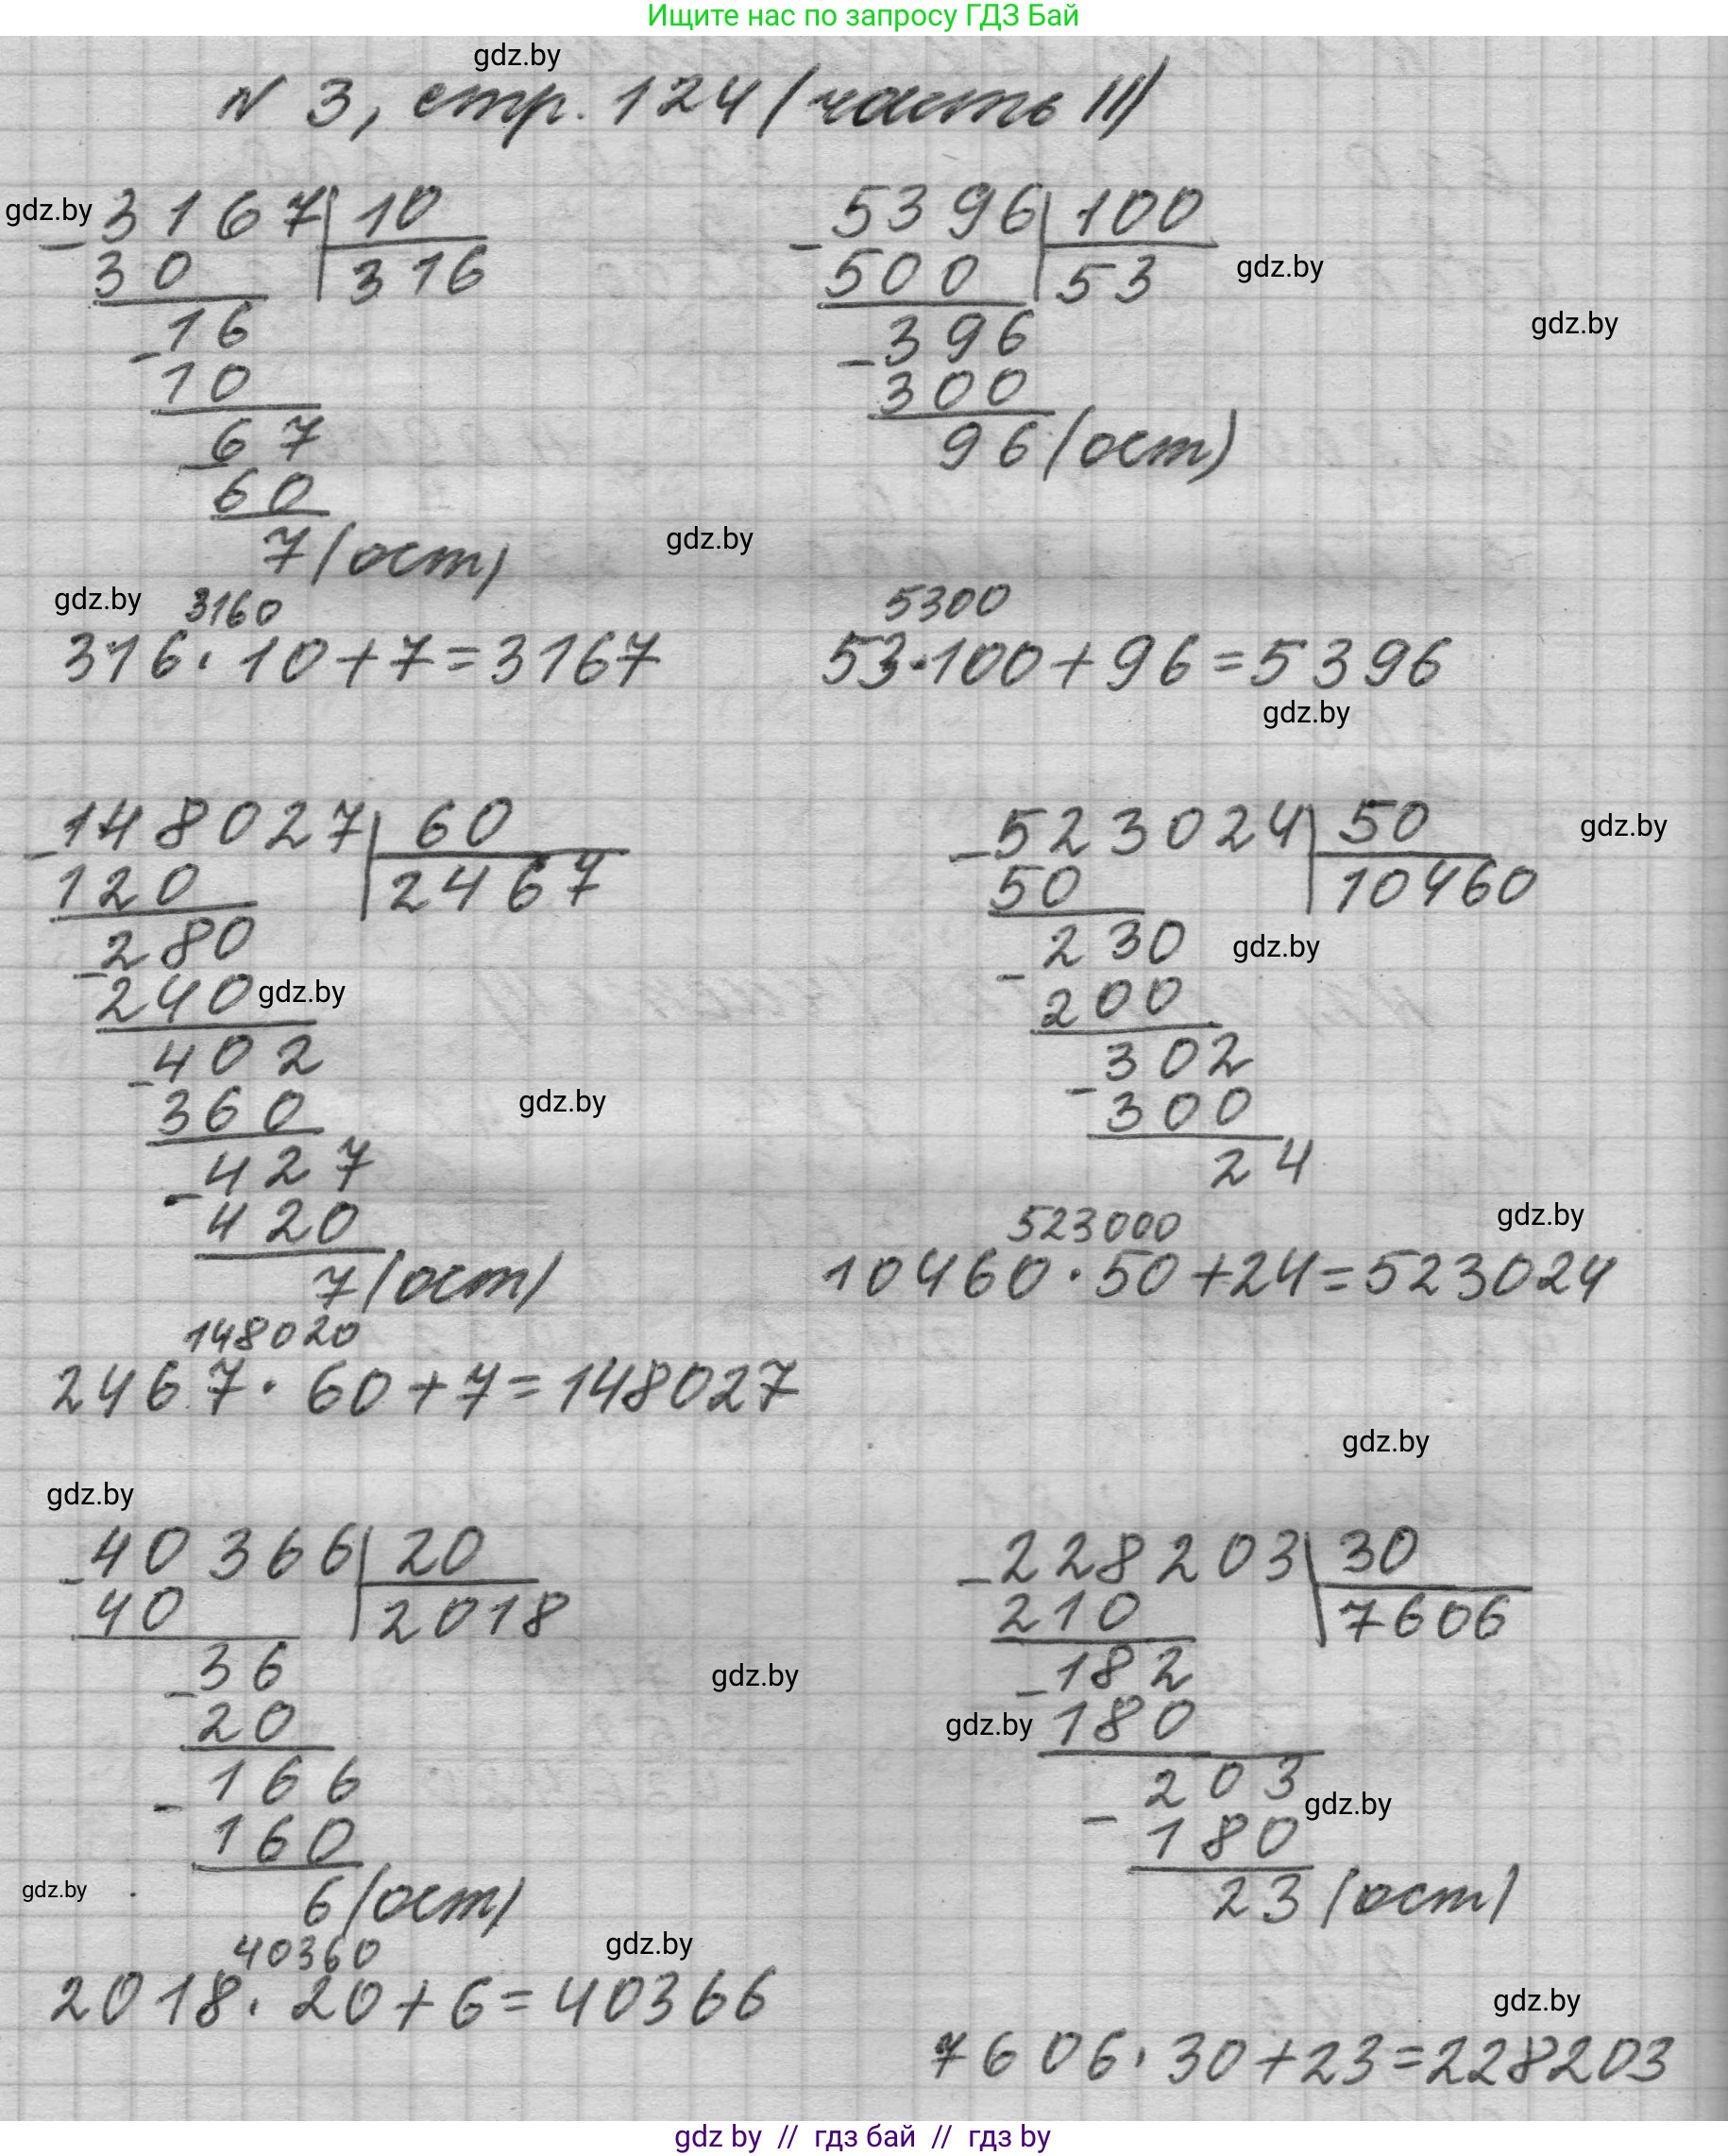 Ищите нас по запросу ГДЗ Бай
gdz.by
N 3, стр. 124 (часть II)
gdz.by
3167 10
- 30 316
16
- 10
67
- 60
7 (ост)
3160
316 · 10 + 7 = 3167
5396 100
- 500 53
gdz.by
gdz.by
396
- 300
96 (ост)
gdz.by
gdz.by
5300
53 · 100 + 96 = 5396
gdz.by
- 148027 60
120 2467
- 280
240
gdz.by
- 402
360
gdz.by
- 427
420
7 (ост)
148020
2467 · 60 + 7 = 148027
- 523024 50
gdz.by
50 10460
- 230
gdz.by
200
- 302
300
24
gdz.by
523000
10460 · 50 + 24 = 523024
gdz.by
gdz.by
- 40366 20
40 2018
- 36
20
- 166
160
gdz.by
6 (ост)
40360
2018 · 20 + 6 = 40366
gdz.by
- 228203 30
210 7606
gdz.by
- 182
gdz.by
180
- 203
gdz.by
180
23 (ост)
gdz.by
7606 · 30 + 23 = 228203
gdz by // гдз бай // гдз by